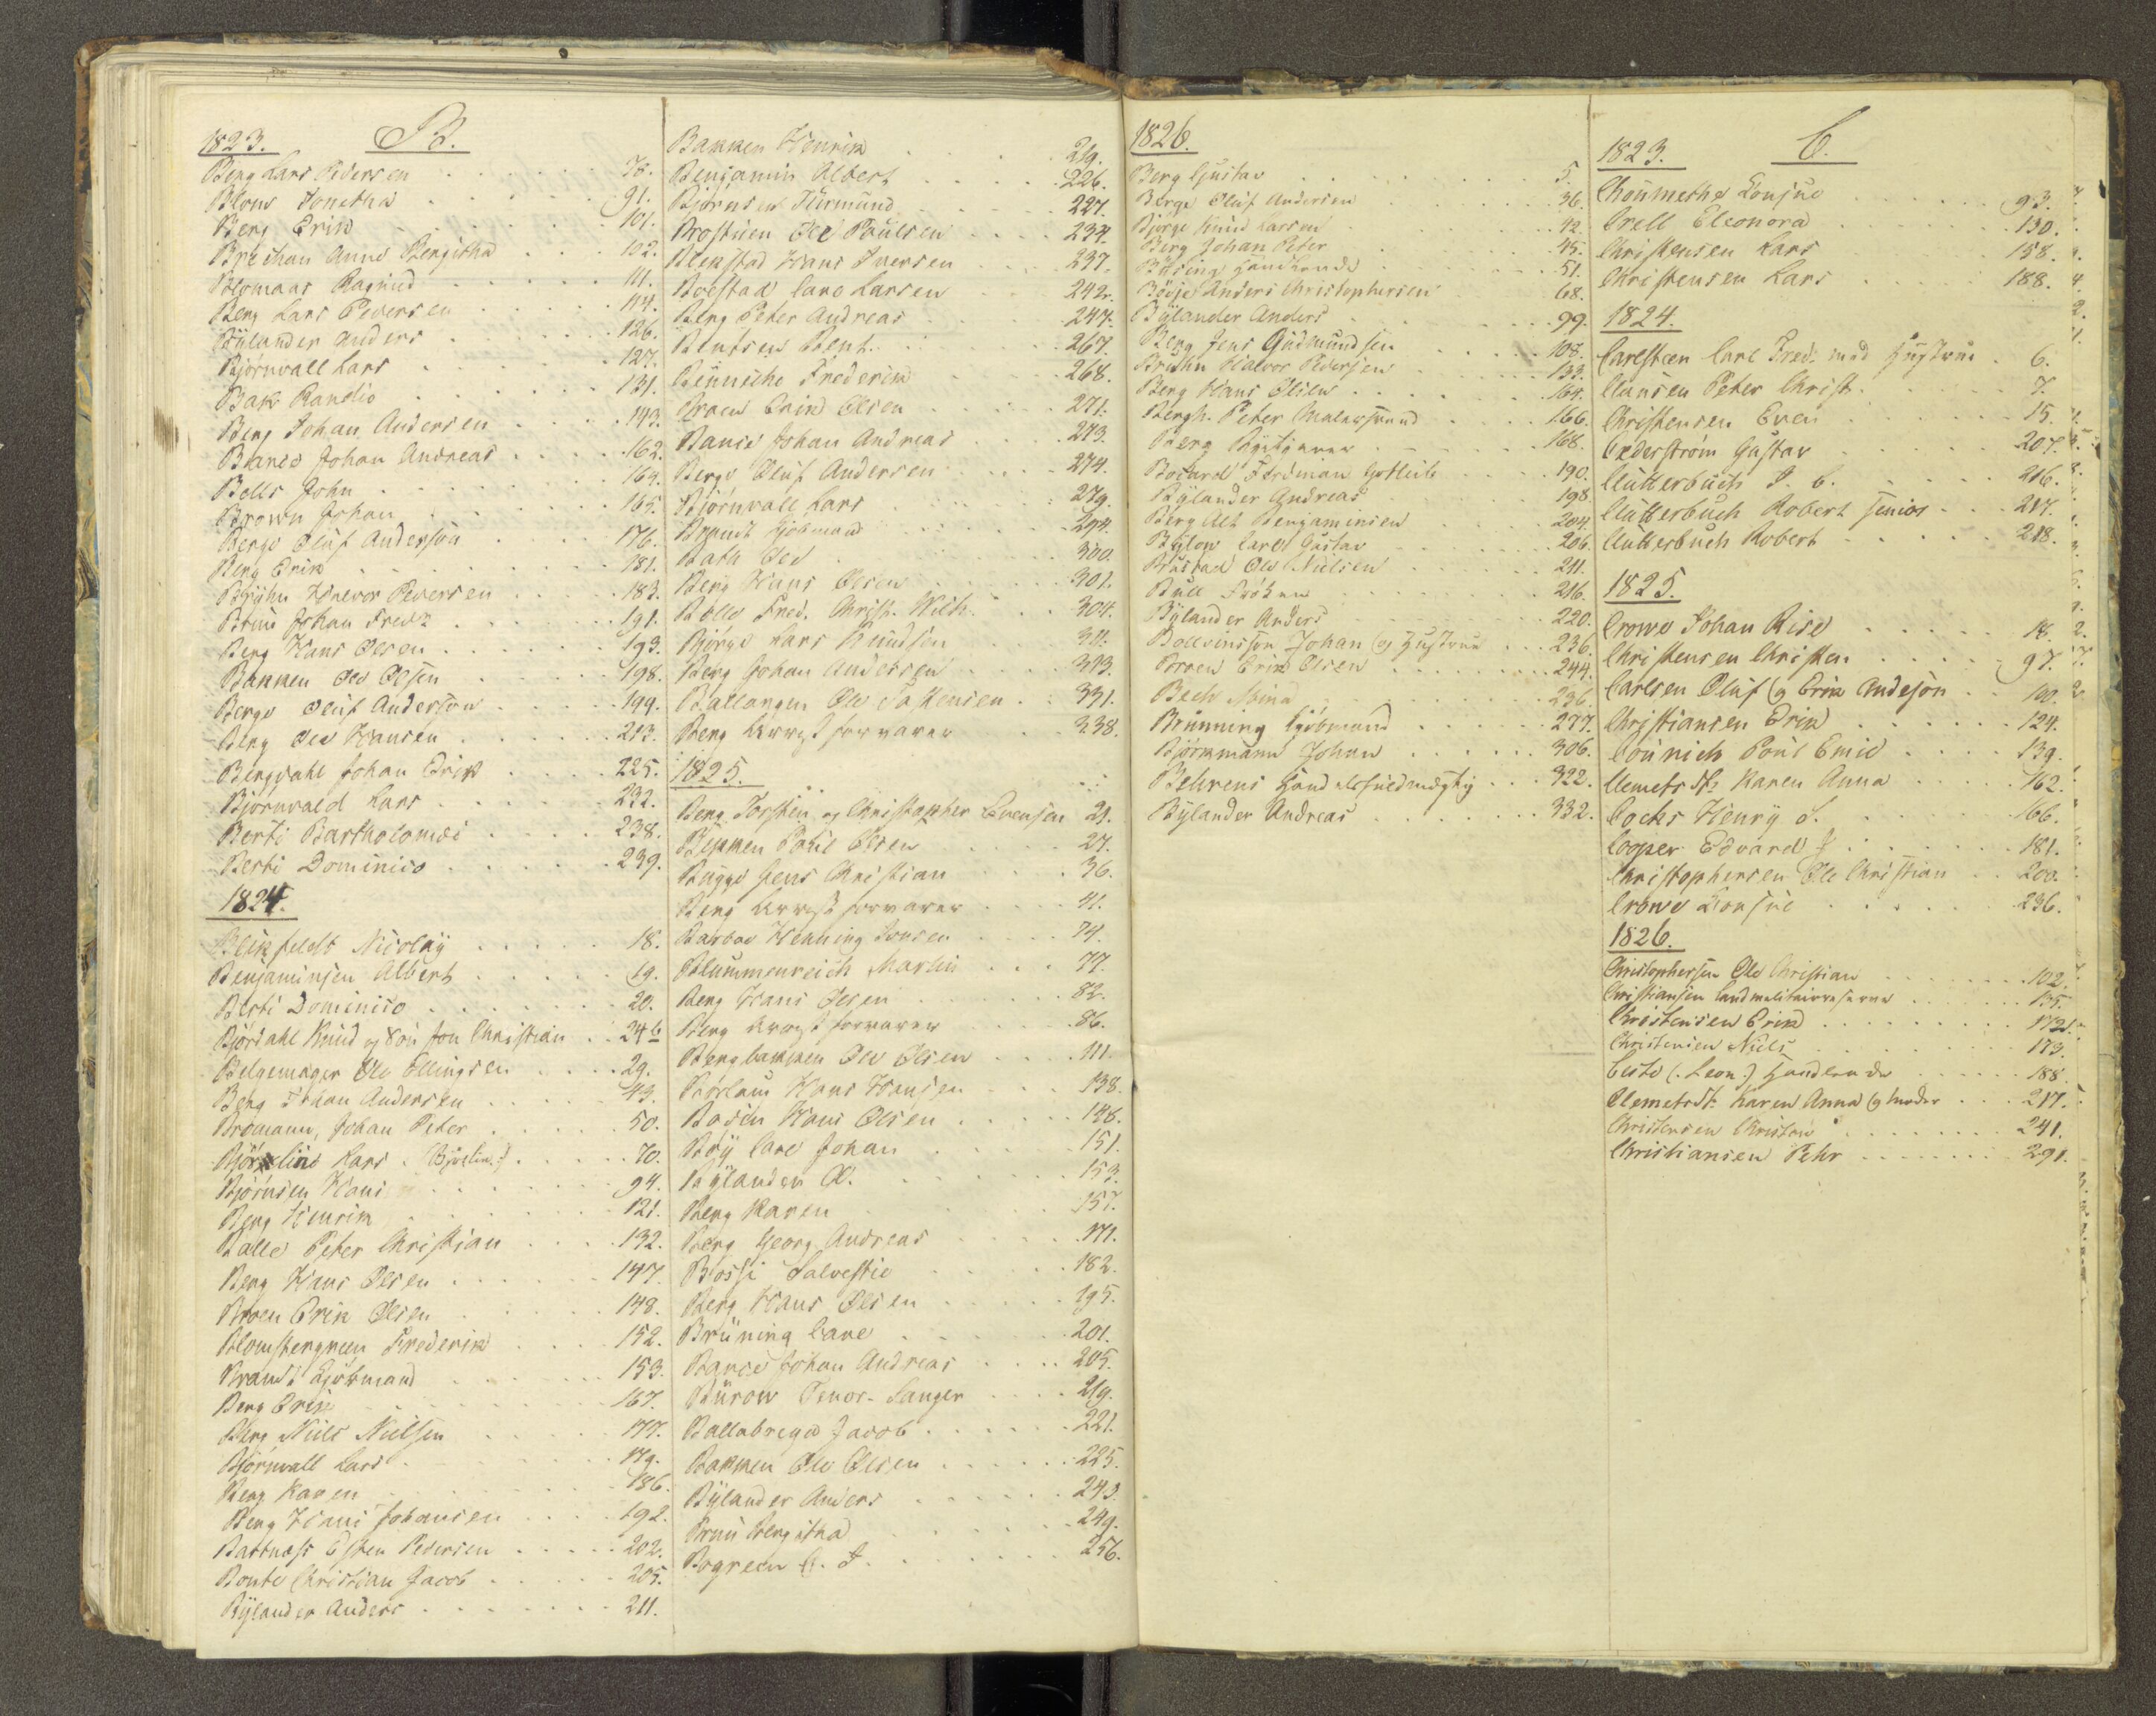 1823. B.
Berg Lars Pedersen 78.
Blom Jonetha 91.
Berg Erik 101.
Brechan Anne Bergitha 102.
Blomaas Ragnid 111.
Berg Lars Pedersen 114.
Bÿlander Anders 126.
Bjørnvall Lars 127.
Bak Randio 131.
Berg Johan Andersen 143.
Barco Johan Andreas 162.
Bells John 164.
Brown Johan 165.
Berge Oluf Anderson 176.
Berg Erik 181.
Bryhn Halvor Pedersen 183.
Bruu Johan Fredr 191.
Berg Hans Olsen 193.
Bakken Ole Olsen 198.
Berge Oluf Anderson 199.
Berg Ole Hansen 213.
Bergvahl Johan Erik 225.
Bjørnvald Lars 232.
Berti Bartholomei 238.
Berti Dominico 239.
1824.
Blixfeldt Nicolaÿ 18.
Benjaminsen Albert 19.
Berti Dominico 20.
Bjørdahl Knud og Søn Jon Christian 24 b
Belgemager Ole Ellingsen 29.
Berg Johan Andersen 43.
Bromann, Johan Peter 50.
Björling Lars (Bjørlin:) 70.
Bjørnsen Hans 94.
Berg Henrik 121.
Balle Peter Christian 132.
Berg Hans Olsen 147.
Broen Erik Olsen 148.
Blomstergreen Frederik 152.
Brandt Kjøbmand 153.
Berg Erik 167.
Berg Niels Nielsen 177.
Bjørnvall Lars 179.
Berg Karen 186.
Berg Hans Johansen 192.
Bartnæss Esten Pedersen 202.
Bonte Christian Jacob 205.
Bÿlander Anders 211.
Bakken Henrik 219.
Benjamin Albert 226.
Bjørnsen Thurmund 227.
Brostuen Ole Poulsen 234.
Blekstad Hans Iversen 237.
Boestad Carl Larsen 242.
Berg Peter Andreas 247.
Bentsen Bent 267.
Benniche Frederik 268.
Broen Erik Olsen 271.
Barco Johan Andreas 273.
Berge Oluf Andersen 274.
Bjørnvall Lars 279.
Brandt Kjøbmand 294.
Bath Ole 300.
Berg Hans Olsen 301.
Bolle Fred. Christ. Wilh. 304.
Bjørge Lars Knudsen 311.
Berg Johan Andersen 313.
Ballangen Ole Torstensen 331.
Berg Arrestforvarer 338.
1825.
Berg Torsten og Christopher Evensen 21.
Bekken Poul Olsen 27.
Bugge Jens Christian 36.
Berg Arrestforvarer 41.
Barboe Henning Jensen 74.
Blummenreich Martin 77.
Berg Hans Olsen 82.
Berg Arrestforvarer 86.
Bergbakken Ole Olsen 111.
Børlaug Hans Hansen 138.
Bosen Hans Olsen 148.
Boÿ Carl Johan 151.
Bÿlander A. 153.
Berg Karen 157.
Berg Georg Andreas 171.
Bossi Salvestio 182.
Berg Hans Olsen 195.
Brüning Carl 201.
Barco Johan Andreas 205.
Bürow Tenor-Sanger 219.
Ballabrega Jacob 221.
Bakken Ole Olsen 225.
Bÿlander Anders 243.
Bruu Bergitha 249.
Bogreen C. J. 256.
1826.
Berg Gustav 5.
Berge Oluf Andersen 36.
Bjørge Knud Larsen 42.
Berg Johan Peter 45.
Büsing Handlende 51.
Böeje Anders Christophersen 68.
Bÿlander Anders 99.
Berg Jens Gudmundsen 108.
Bruhn Halvor Pedersen 133.
Berg Hans Olsen 164.
Bergh Peter Malersvend 166.
Berg Rygtgarver 168.
Bocard Ferdinan Gotlieb 190.
Bÿlander Andreas 198.
Berg Alt Benjaminsen 204.
Bÿlow Carl Gustav 206.
Brustad Ole Nielsen 211.
Bull Frøken 216.
Bÿlander Anders 220.
Bollvinsson Johan og Hustrue 236.
Broen Erik Olsen 244.
Bech Stina 256.
Brunning Kjøbmand 277.
Bjørkmann Johan 306.
Behrens Handelsfuldmægtig 322.
Bÿlander Andreas 332.
1823. C.
Choumethe Konsul 93.
Crell Eleonora 130.
Christensen Lars 158.
Christensen Lars 188.
1824.
Carlsten Carl Fred: med Hustrue 6.
Clausen Peter Christ. 7.
Christensen Even 15.
Cederstrøm Gustav 207.
Clutterbuch J. C. 216.
Clutterbuch Robert senior 217.
Clutterbuch Robert 218.
1825.
Crowe Johan Rice 18.
Christensen Christen 97.
Carlsen Oluf og Erik Andeson 100.
Christiansen Erik 124.
Counich Poul Emil 139.
Clemetsdtr Karen Anna 162.
Cocks Henrÿ S. 166.
Cooper Edvard J 181.
Christophersen Ole Christian 200.
Crowe Konsul 236.
1826.
Christophersen Ole Christian 102.
Christiansen Landmilitair 135.
Christensen Erik 172.
Christensen Niels 173.
Cesto (: Leon:) Handlende 188.
Clemetsdtr Karen Anna og Moder 217.
Christensen Christen 241.
Christiansen Pehr 291.